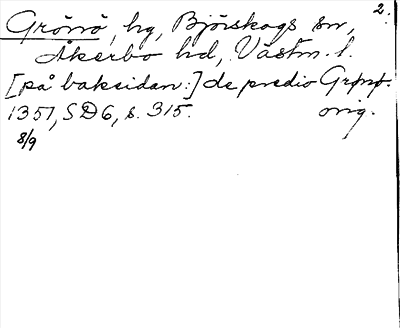 2.
Grönö, hg, Björskogs sn,
Åkerbo hd, Västm. l.
[på baksidan:] de predio Grønø.
1351, SD6, s. 315. orig.
8/9